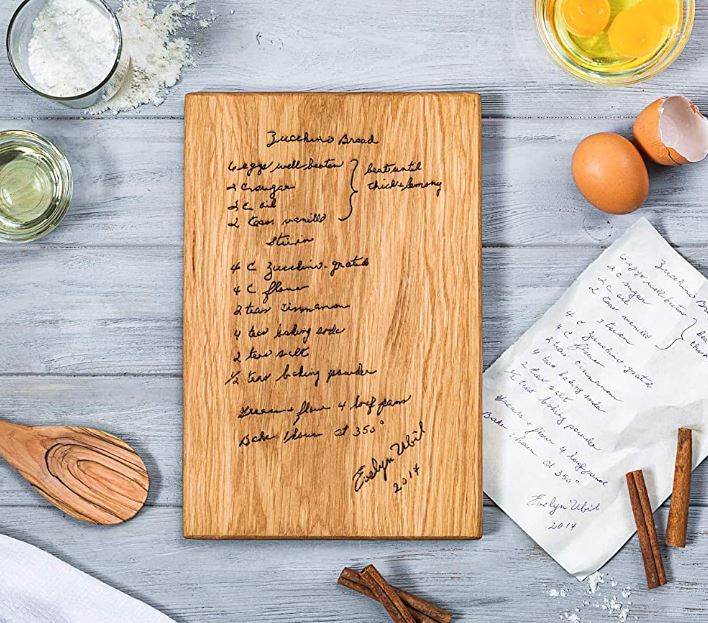 Zucchino Bread
6 eggs well-beaten } beat until
2 C sugar thick & lemony
2 C oil
2 teas vanilla
Stir in
4 C Zucchino-grated
4 C flour
2 teas cinnamon
4 teas baking soda
2 teas salt
1/2 teas baking powder
Grease & flour 4 loaf pans
Bake 1 hour at 350°
Evelyn Ubil
2014
Zucchino
6 eggs well-beaten
2 C sugar
2 C oil
2 teas vanilla
Stir in
4 C Zucchino-grated
4 C flour
2 teas cinnamon
4 teas baking soda
2 teas salt
1/2 teas baking powder
Grease & flour 4 loaf pans
Bake 1 hour at 350°
Evelyn Ubil
2014